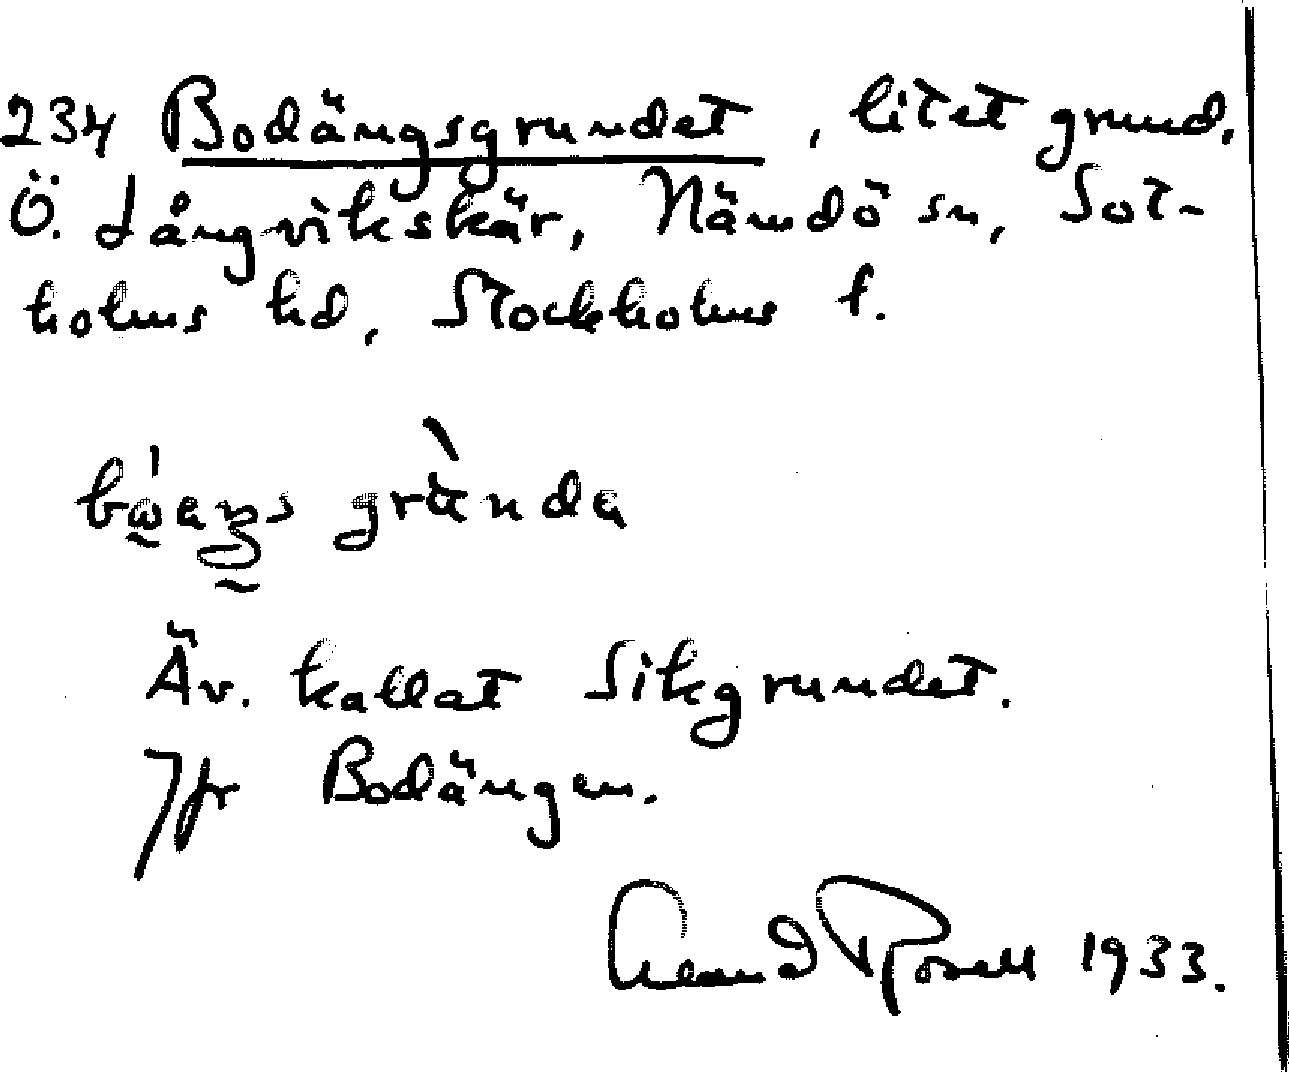 234 Bodängsgrundet, litet grund,
Ö. Långvikskär, Nämdö sn, Sot-
holms hd, Stockholms l.
grùnda
Äv. kallat Sikgrundet.
Jfr Bodängen.
Rosell 1933.